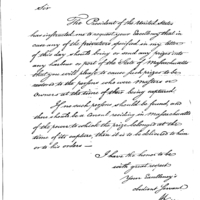 Sir
The President of the United States
has instructed me to request your Excellency that in
case any of the persons specified in any letter
of this day should bring or send any prizes into
any harbour or port of the State of Massachusetts
that you will please to cause such prizes to be
restored to the persons who were
owners at the time of their being captured.
If no such persons should be found, and
there should be a Consul residing in Massachusetts
of the power to which the prize belonged at the
time of its capture, then it is to be delivered to him
or to his orders
I have the honor to be
with great respect
Your Excellency's
obedient Servant